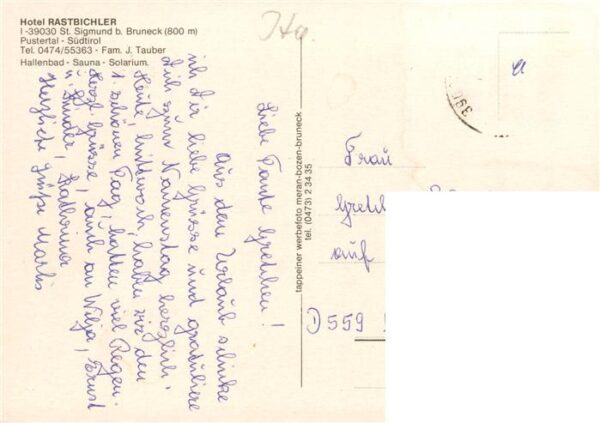 Hotel RASTBICHLER
I-39030 St. Sigmund b. Bruneck (800 m)
Pustertal - Südtirol
Tel. 0474/55363 · Fam. J. Tauber
Hallenbad - Sauna - Solarium.
Liebe Tante Gretchen!
Aus dem Urlaub schicke
ich dir liebe Grüsse und gratuliere
dich zum Namenstag herzlich.
Heute, Mittwoch, haben wir den
1. schönen Tag, hatten viel Regen.
Herzl. Grüsse, auch an Wilja, Ernst
u. Kinder, Kathrina
Herzliche Grüße Maria
tappeiner werbefoto meran-bozen-bruneck
tel. (0473) 2 34 35
Frau
auf
D 559